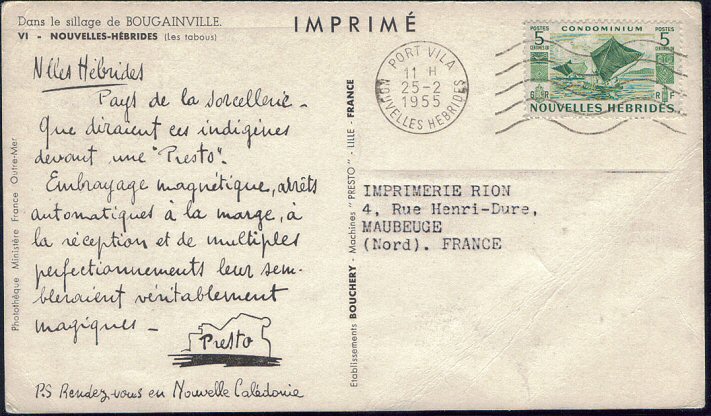 Dans le sillage de BOUGAINVILLE.
VI - NOUVELLES-HÉBRIDES (Les tabous)
IMPRIMÉ
Nlles Hébrides
Pays de la sorcellerie -
Que diraient ces indigènes
devant une "Presto".
Embrayage magnétique, arrêts
automatiques à la marge, à
la réception et de multiples
perfectionnements leur sem-
bleraient véritablement
magiques -
Presto
P.S Rendez-vous en Nouvelle Calédonie
Photothèque Ministère France Outre-Mer
Etablissements BOUCHERY - Machines "PRESTO" - LILLE - FRANCE
PORT VILA
11 H
25-2
1955
NOUVELLES HEBRIDES
POSTES
5
CENTIMES OR
CONDOMINIUM
POSTES
5
CENTIMES OR
R F
NOUVELLES HÉBRIDES
IMPRIMERIE RION
4, Rue Henri-Dure,
MAUBEUGE
(Nord). FRANCE